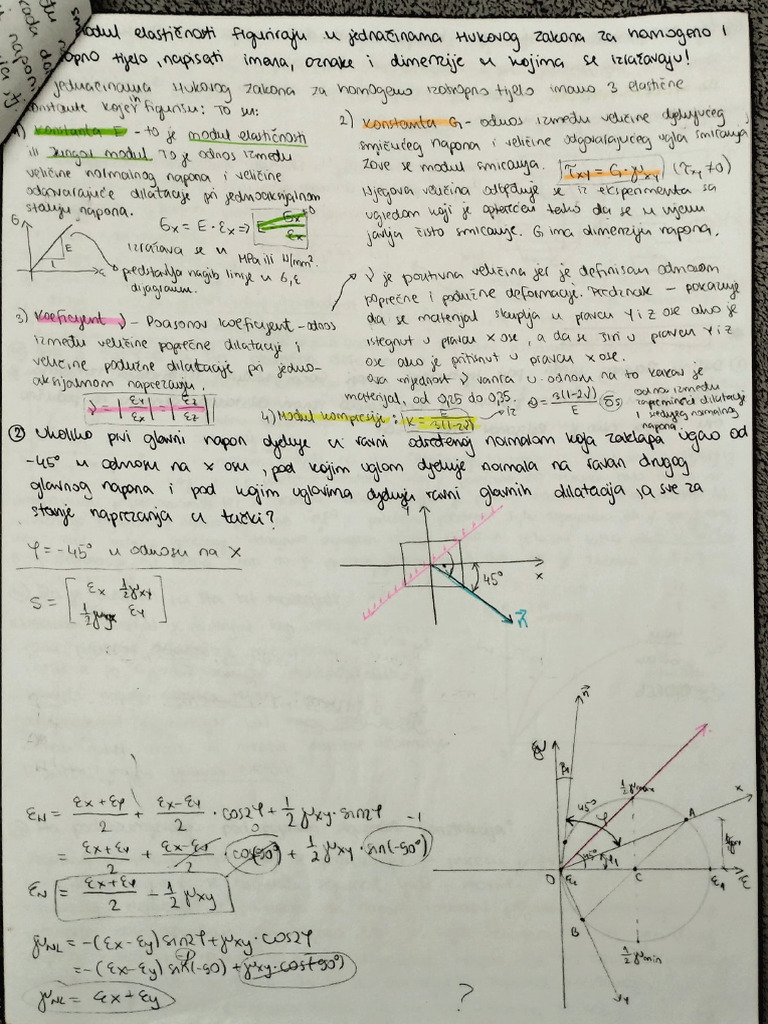 modul elastičnosti figuriraju u jednačinama Hukovog zakona za homogeno i
tropno tijelo, napisati imena, oznake i dimenzije u kojima se izražavaju!
jednačinama Hukovog zakona za homogeno izotropno tijelo imamo 3 elastične
konstante koje figurišu: To su:
1) Konstanta E - to je modul elastičnosti
ili Jungov modul. To je odnos između
veličine normalnog napona i veličine
odgovarajuće dilatacije pri jednoaksijalnom
stanju napona.
σx = E · εx =>
izražava se u MPa ili N/mm².
predstavlja nagib linije u σ, ε
dijagramu.
σ
E
1
ε
2) Konstanta G - odnos između veličine djelujućeg
smičućeg napona i veličine odgovarajućeg ugla smicanja
zove se modul smicanja. τxy = G · γxy (τxy ≠ 0)
Njegova veličina određuje se iz eksperimenta sa
uzorkom koji je opterećen tako da se u njemu
javlja čisto smicanje. G ima dimenziju napona.
3) Koeficijent ν - Poasonov koeficijent - odnos
između veličine poprečne dilatacije i
veličine podužne dilatacije pri jedno-
aksijalnom naprezanju.
ν = |εy/εx| = |εz/εx|
ν je pozitivna veličina jer je definisan odnosom
poprečne i podužne deformacije. Predznak - pokazuje
da se materijal skuplja u pravcu Y i z ose ako je
istegnut u pravcu x ose, a da se širi u pravcu Y i z
ose ako je pritisnut u pravcu x ose.
ova vrijednost ν varira u odnosu na to kakav je
materijal, od 0,25 do 0,35.
4) Modul kompresije: K = E/3(1-2ν)
iz
θ = 3(1-2ν)/E
odnos između
zapreminske dilatacije
i srednjeg normalnog
napona
② Ukoliko prvi glavni napon djeluje u ravni određenoj normalom koja zaklapa ugao od
-45° u odnosu na x osu, pod kojim uglom djeluje normala na ravan drugog
glavnog napona i pod kojim uglovima djeluju ravni glavnih dilatacija, a sve za
stanje naprezanja u tački?
φ = -45° u odnosu na x
S = [εx ½γxy
½γyx εy]
Y
x
45°
n
εN = εx+εy/2 + εx-εy/2 · cos2φ + ½γxy · sin2φ
= εx+εy/2 + εx-εy/2 · cos(-90°) + ½γxy · sin(-90°)
0
-1
εN = εx+εy/2 - ½γxy
γNL = -(εx-εy)sin2φ + γxy · cos2φ
= -(εx-εy)sin(-90) + γxy·cos(-90°)
γNL = εx+εy
?
n
½γmax
x
45°
φ
A
45°
O
C
ε1
ε
B
½γmin
y